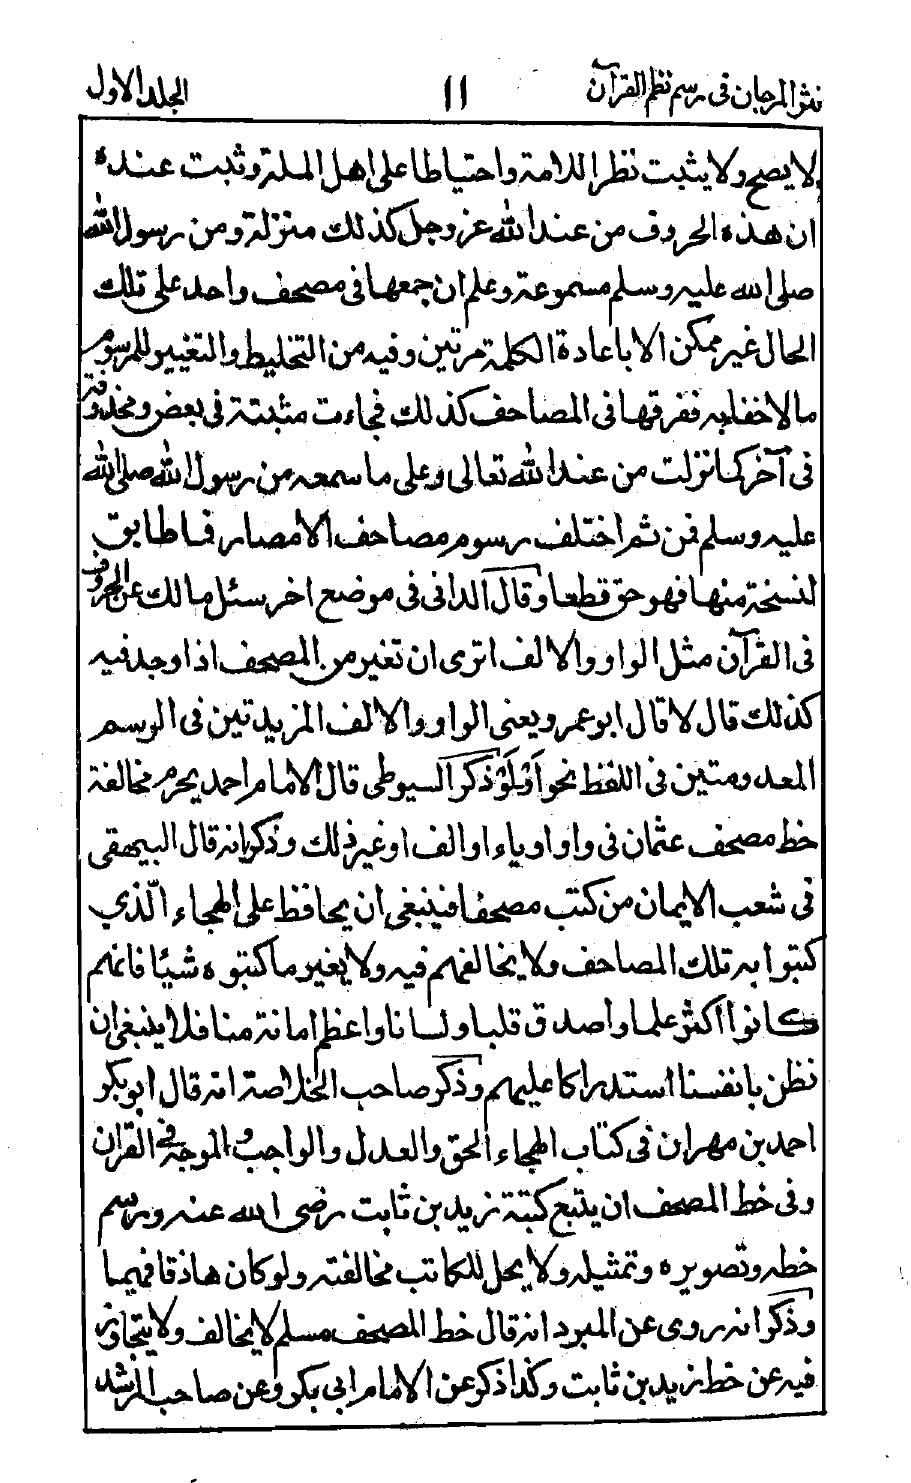 نثر المرجان في رسم نظم القرآن ١١ المجلد الاول
لا يصح ولا يثبت نظرا للامة واحتياطا على اهل الملة وثبت عنده
ان هذه الحروف من عند الله عز وجل كذلك منزلة ومن رسول الله
صلى الله عليه وسلم مسموعة وعلم ان جمعها في مصحف واحد على تلك
الحال غير ممكن الا باعادة الكلمة مرتين وفيه من التخليط والتغيير للمرسوم
ما لا خفا به ففرقها في المصاحف كذلك فجاءت مثبتة في بعض ومحذوفة
في آخر كما نزلت من عند الله تعالى وعلى ما سمعه من رسول الله صلى الله
عليه وسلم فمن ثم اختلف رسوم مصاحف الامصار فما طابق
لنسخة منها فهو حق قطعا وقال الداني في موضع اخر سئل مالك عن الحروف
في القرآن مثل الواو والالف اترى ان تغير من المصحف اذا وجد فيه
كذلك قال لا قال ابو عمر ويعني الواو والالف المزيدتين في الرسم
المعدومتين في اللفظ نحو اُولُو ذكر السيوطي قال الامام احمد يحرم مخالفة
خط مصحف عثمان في واو او ياء او الف او غير ذلك وذكر انه قال البيهقي
في شعب الايمان من كتب مصحفا فينبغي ان يحافظ على الهجاء الّذي
كتبوا به تلك المصاحف ولا يخالفهم فيه ولا يغير ما كتبوه شيئا فانهم
كانوا اكثر علما واصدق قلبا ولسانا واعظم امانة منا فلا ينبغي ان
نظن بانفسنا استدراكا عليهم وذكر صاحب الخلاصة انه قال ابو بكر
احمد بن مهران في كتاب الهجاء الحق والعدل والواجب والموجه في القران
وفي خط المصحف ان يتبع كتبة زيد بن ثابت رضي الله عنه ورسم
خطه وتصويره وتمثيله ولا يحل للكاتب مخالفته ولو كان هاذقا فهيما
وذكر انه روى عن المبرد انه قال خط المصحف مسلم لا يخالف ولا يتجاوز
فيه عن خط زيد بن ثابت وكذا ذكر عن الامام ابي بكر وعن صاحب المرشد